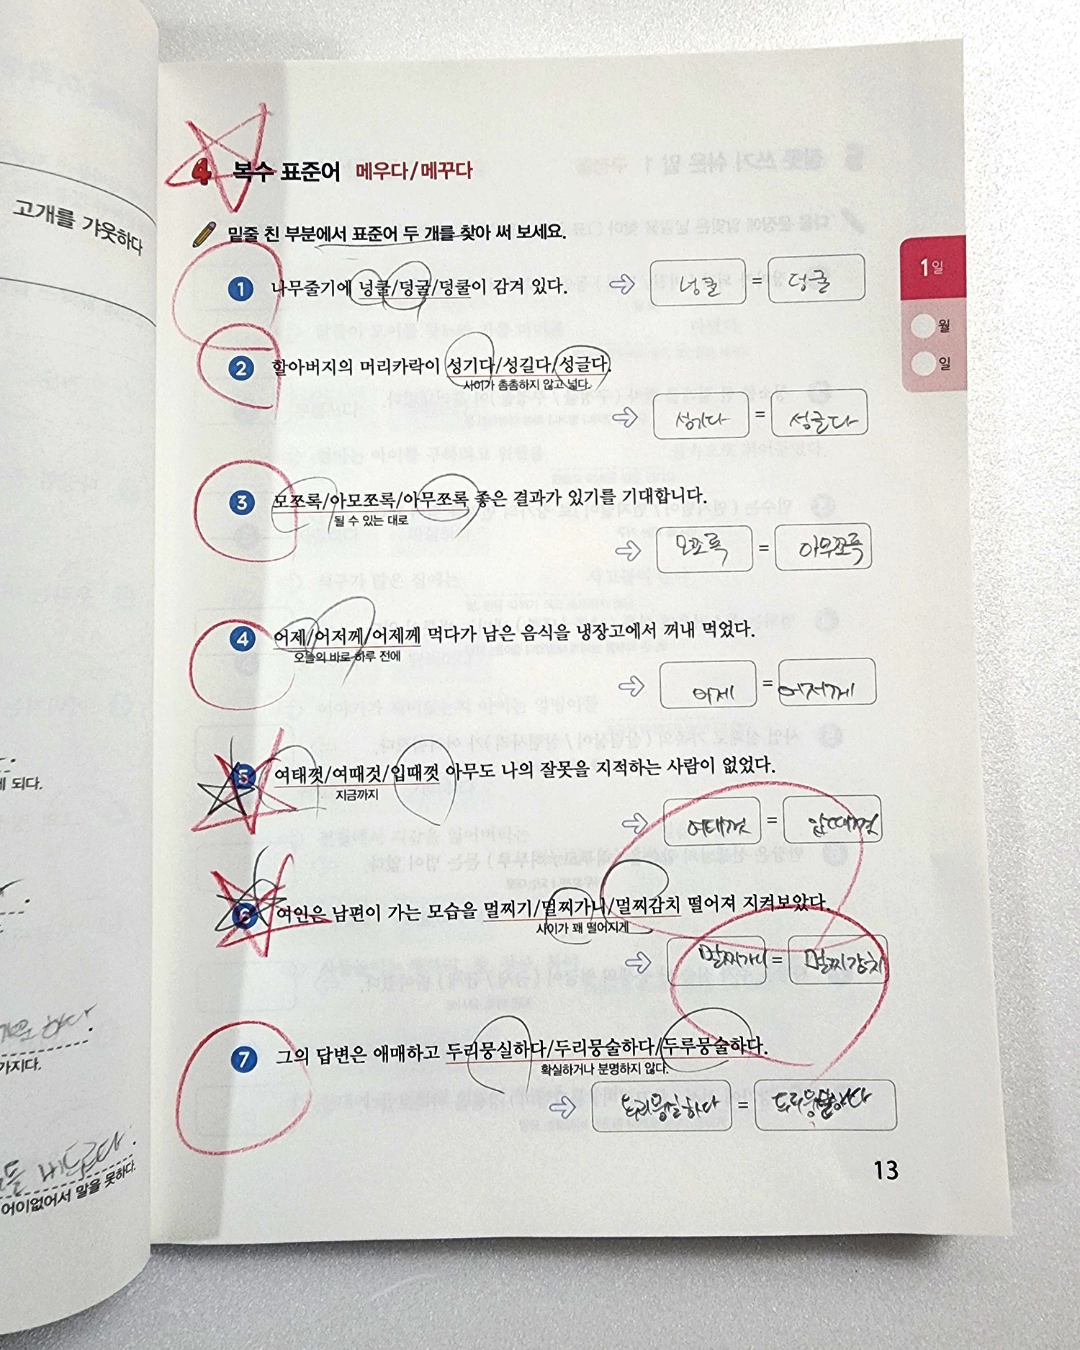 고개를 갸웃하다
게 되다.
가지다.
어이없어서 말을 못하다.
4 복수 표준어 메우다/메꾸다
밑줄 친 부분에서 표준어 두 개를 찾아 써 보세요.
1 나무줄기에 넝쿨/덩굴/덩쿨이 감겨 있다.
넝쿨 = 덩굴
2 할아버지의 머리카락이 성기다/성길다/성글다.
사이가 촘촘하지 않고 넓다.
성기다 = 성글다
3 모쪼록/아모쪼록/아무쪼록 좋은 결과가 있기를 기대합니다.
될 수 있는 대로
모쪼록 = 아무쪼록
4 어제/어저께/어제께 먹다가 남은 음식을 냉장고에서 꺼내 먹었다.
오늘의 바로 하루 전에
어제 = 어저께
5 여태껏/여때것/입때껏 아무도 나의 잘못을 지적하는 사람이 없었다.
지금까지
여태껏 = 입때껏
6 여인은 남편이 가는 모습을 멀찌기/멀찌가니/멀찌감치 떨어져 지켜보았다.
사이가 꽤 떨어지게
멀찌가니 = 멀찌감치
7 그의 답변은 애매하고 두리뭉실하다/두리뭉술하다/두루뭉술하다.
확실하거나 분명하지 않다.
두리뭉실하다 =
1일
월
일
13